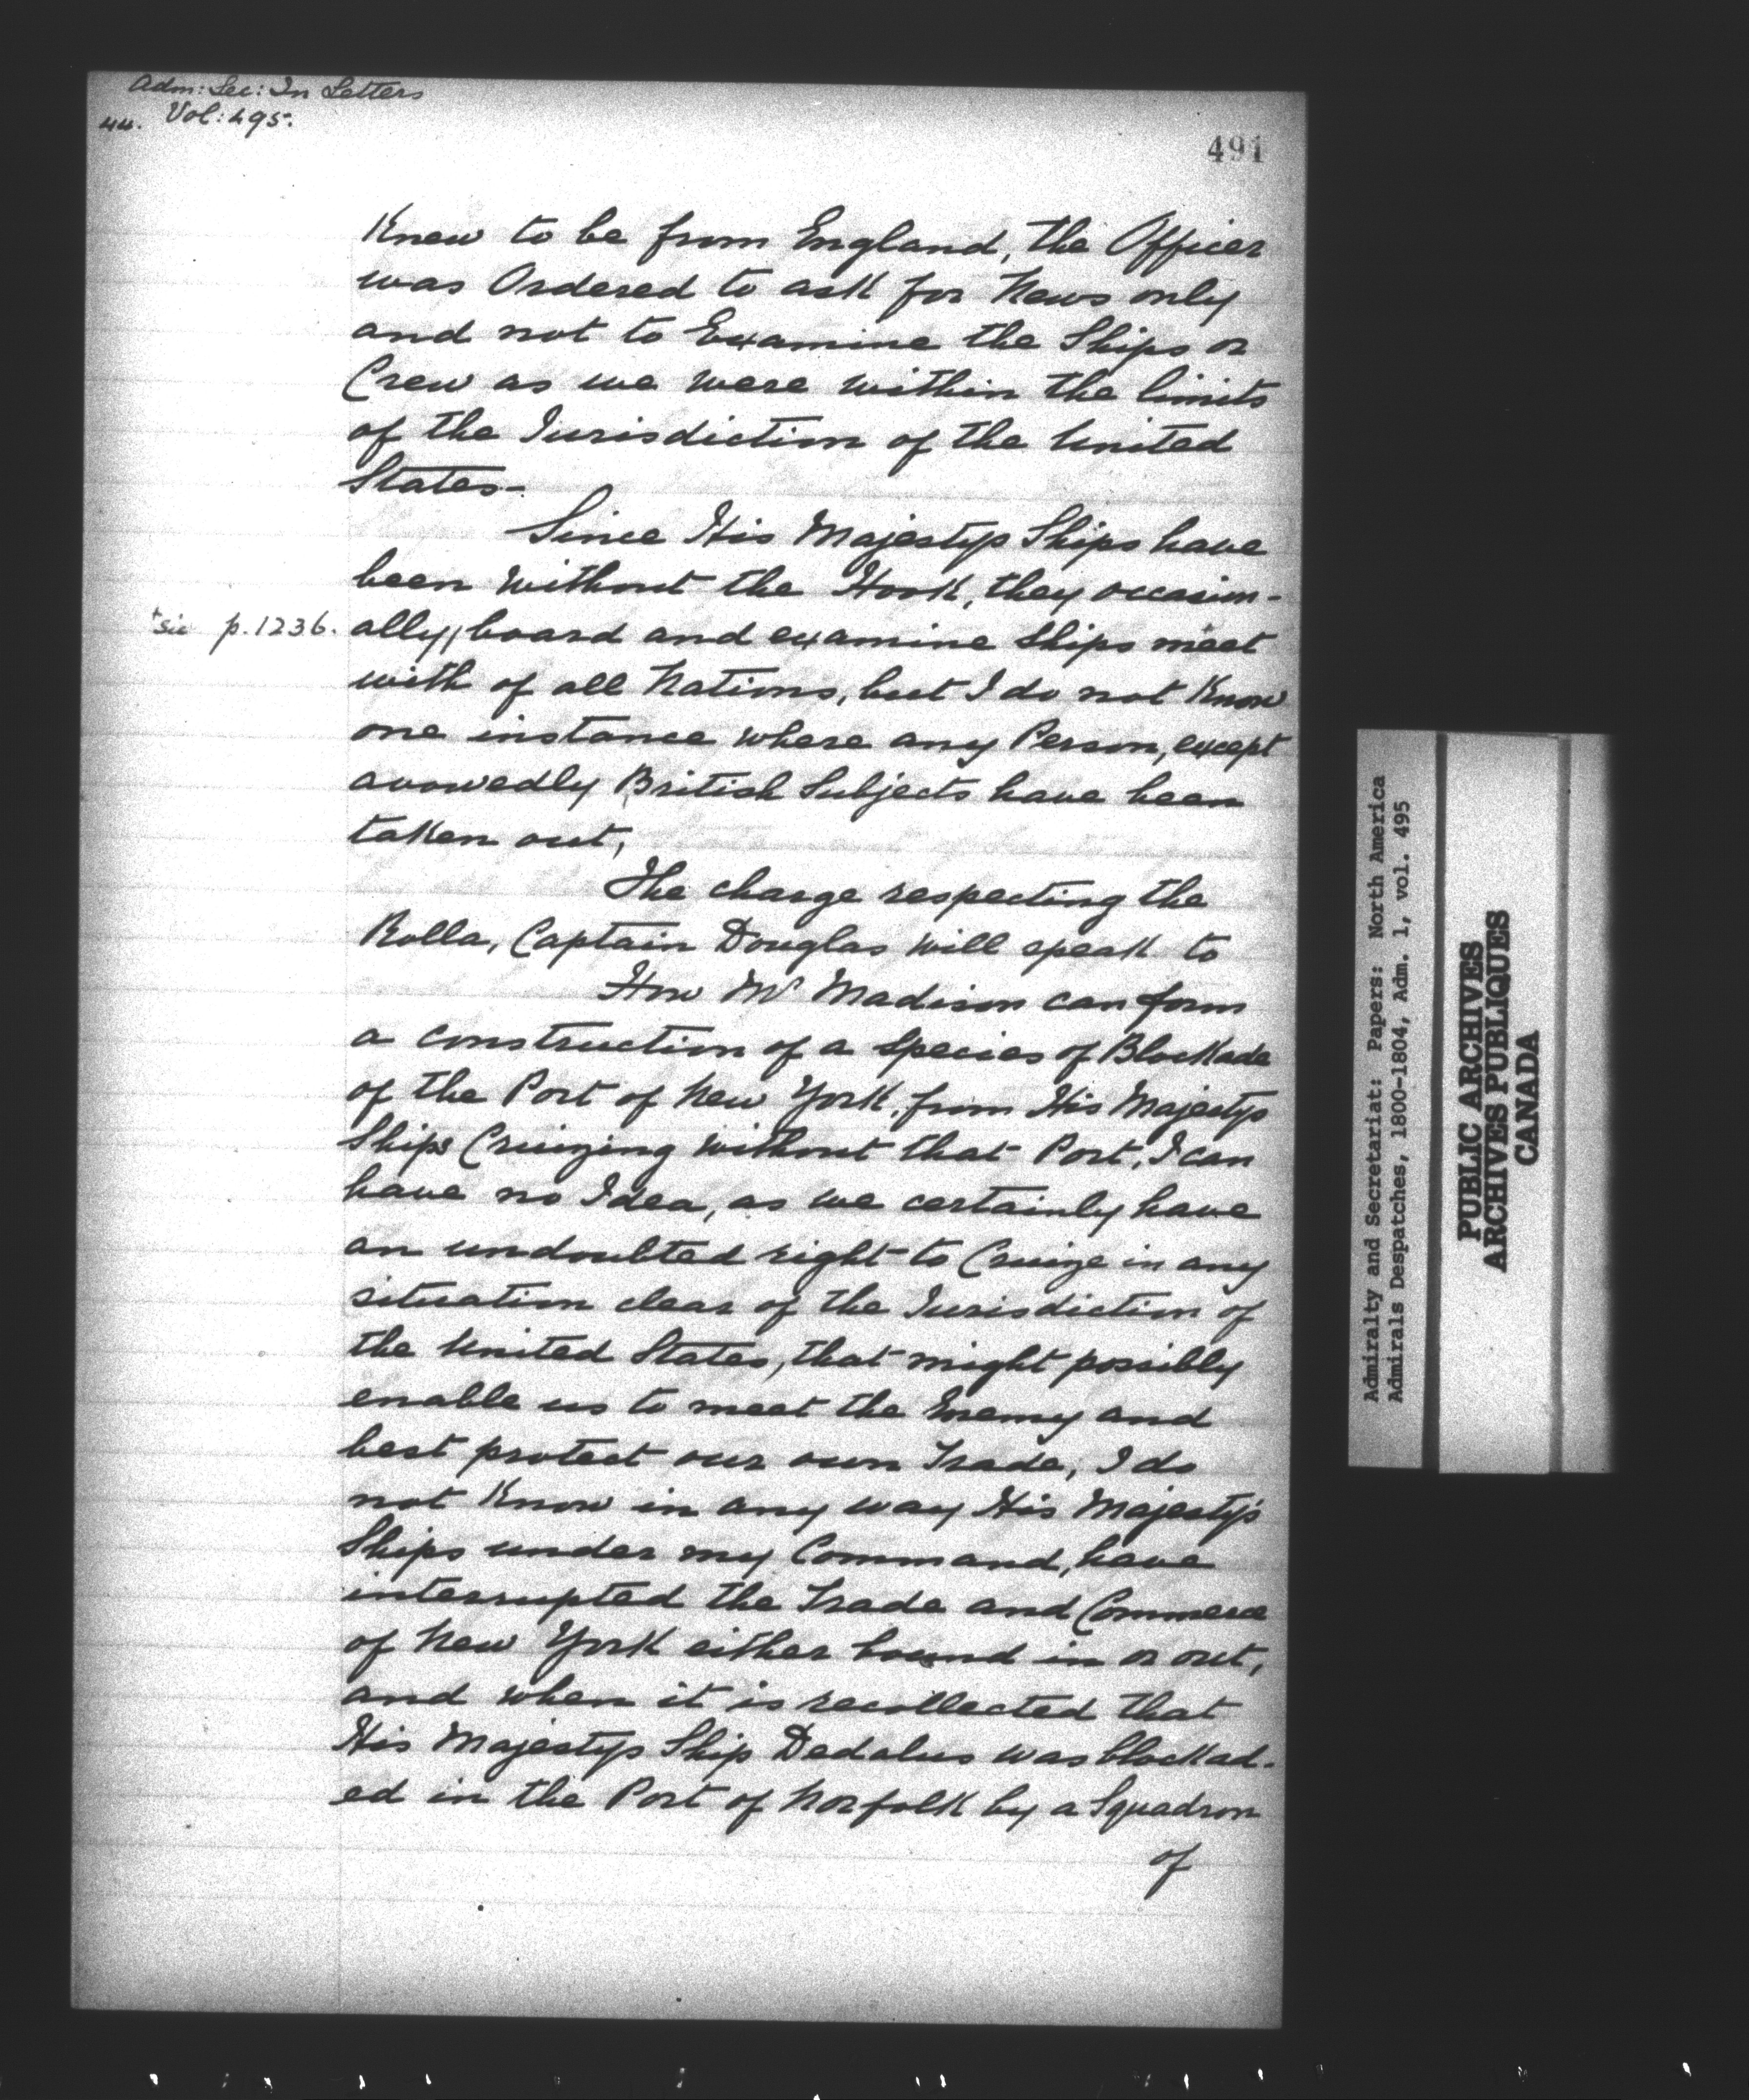 Adm: Sec: In Letters
44. Vol: 495.
491
Knew to be from England, the Officer
was Ordered to ask for News only
and not to Examine the Ships or
Crew as we were within the limits
of the Jurisdiction of the United
States-
Since His Majestys Ships have
been without the Hook, they occasion-
+sic p.1236. ally, board and examine Ships meet
with of all Nations, but I do not Know
one instance where any Person, except
avowedly British Subjects have been
taken out,
The charge respecting the
Rolla, Captain Douglas will speak to
How Mr Madison can form
a construction of a Species of Blockade
of the Port of New York, from His Majestys
Ships Cruizing without that Port, I can
have no Idea, as we certainly have
an undoubted right to Cruize in any
situation clear of the Jurisdiction of
the United States, that might possibly
enable us to meet the Enemy and
best protect our own Trade, I do
not Know in any way His Majesty's
Ships under my Command, have
interrupted the Trade and Commerce
of New York either bound in or out,
and when it is recollected that
His Majestys Ship Dedalus was blockad-
ed in the Port of Norfolk by a Squadron
of
Admiralty and Secretariat: Papers: North America
Admirals Despatches, 1800-1804, Adm. 1, vol. 495
PUBLIC ARCHIVES
ARCHIVES PUBLIQUES
CANADA